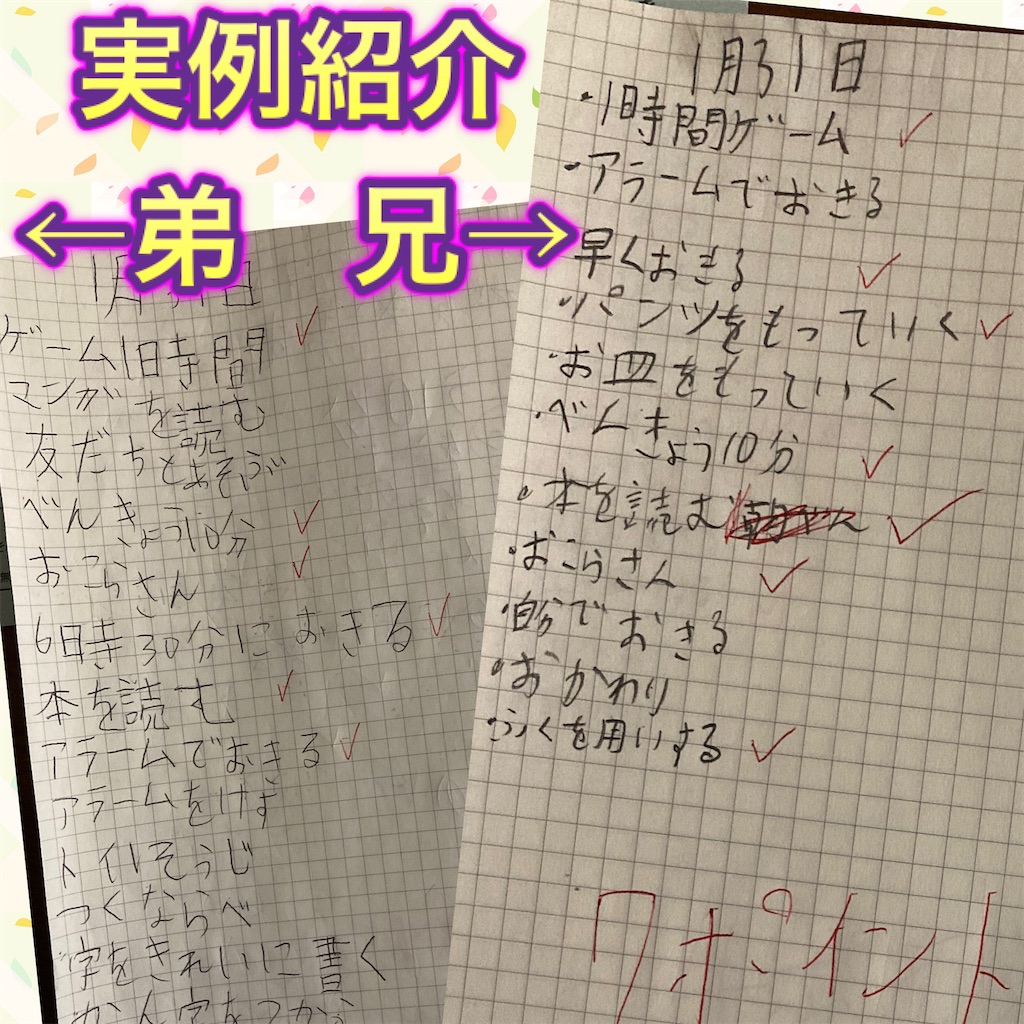 実例紹介
←弟 兄→
1月31日
ゲーム1時間
マンガを読む
友だちとあそぶ
べんきょう10分
おこらさん
6時30分におきる
本を読む
アラームでおきる
アラームをけす
トイレそうじ
つくならべ
字をきれいに書く
かん字をつかう
1月31日
・1時間ゲーム
・アラームでおきる
早くおきる
・パンツをもっていく
・お皿をもっていく
・べんきょう10分
・本を読む
・おこらさん
・自分でおきる
・おかわり
・ふくを用いする
7ポイント